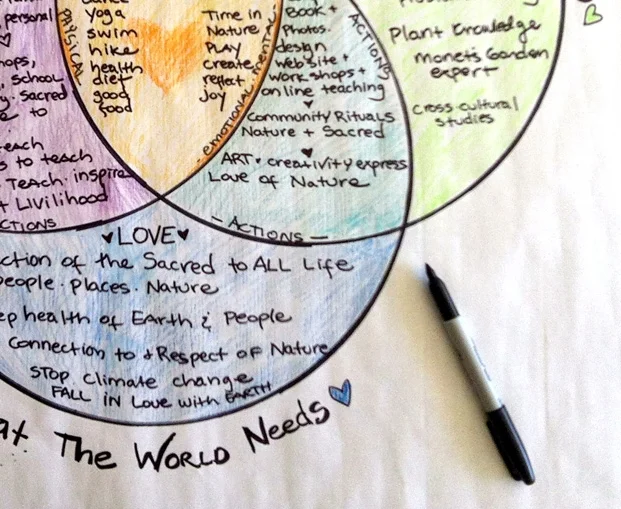 personal
PHYSICAL
yoga
swim
hike
health
diet
good
food
Time in
Nature
PLAY
create
reflect
joy
EMOTIONAL · mental
Book +
Photos.
design
website +
workshops +
online teaching
♥
Community Rituals
Nature + Sacred
♥
ART · creativity express
Love of Nature
ACTIONS
Plant Knowledge
monet's Garden
expert
cross cultural
studies
school
Sacred
to
each
s to teach
Teach · inspire
+ Livilihood
CTIONS
– ACTIONS –
♥LOVE♥
ction of the Sacred to ALL Life
eople · Places · Nature
ep health of Earth & People
Connection to + Respect of Nature
STOP climate change
FALL in Love with EARTH
at The WORLD Needs